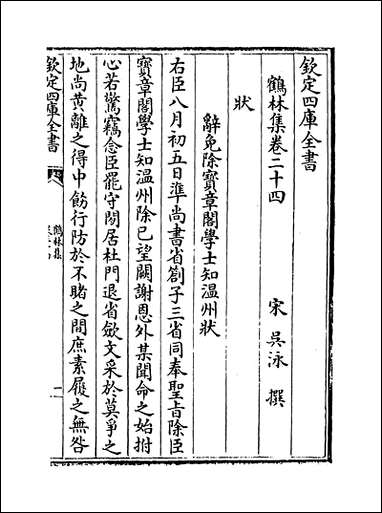 欽定四庫全書
鶴林集卷二十四
宋 吳泳 撰
狀
辭免除寶章閣學士知溫州狀
右臣八月初五日準尚書省劄子三省同奉聖旨除臣
寶章閣學士知溫州除已望闕謝恩外某聞命之始拊
心若驚竊念臣罷守閒居杜門退省斂文采於莫爭之
地尚黃離之得中飭行防於不睹之間庶素履之無咎
欽定四庫全書
鶴林集
卷二十四
一